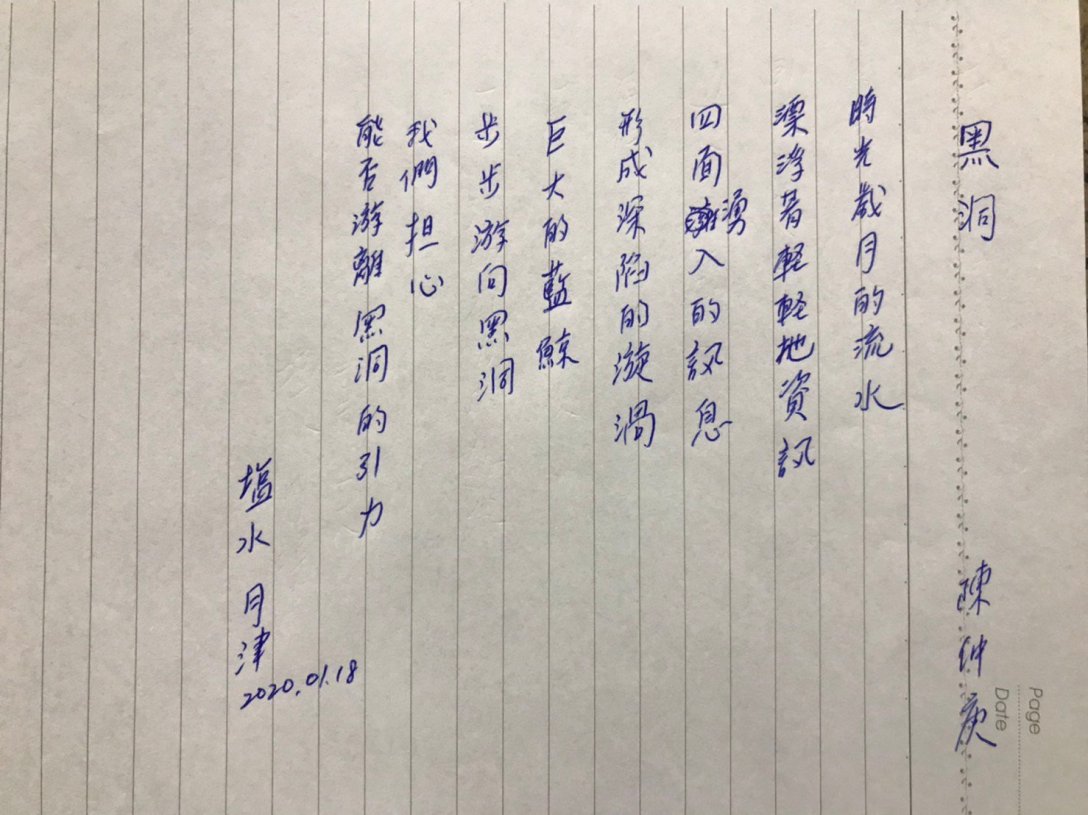 Page
Date
黑洞 陳
時光歲月的流水
漂浮著軽軽地資訊
四面湧入的訊息
形成深陷的漩渦
巨大的藍鯨
步步游向黑洞
我們担心
能否游離黑洞的引力
塩水月津
2020.01.18